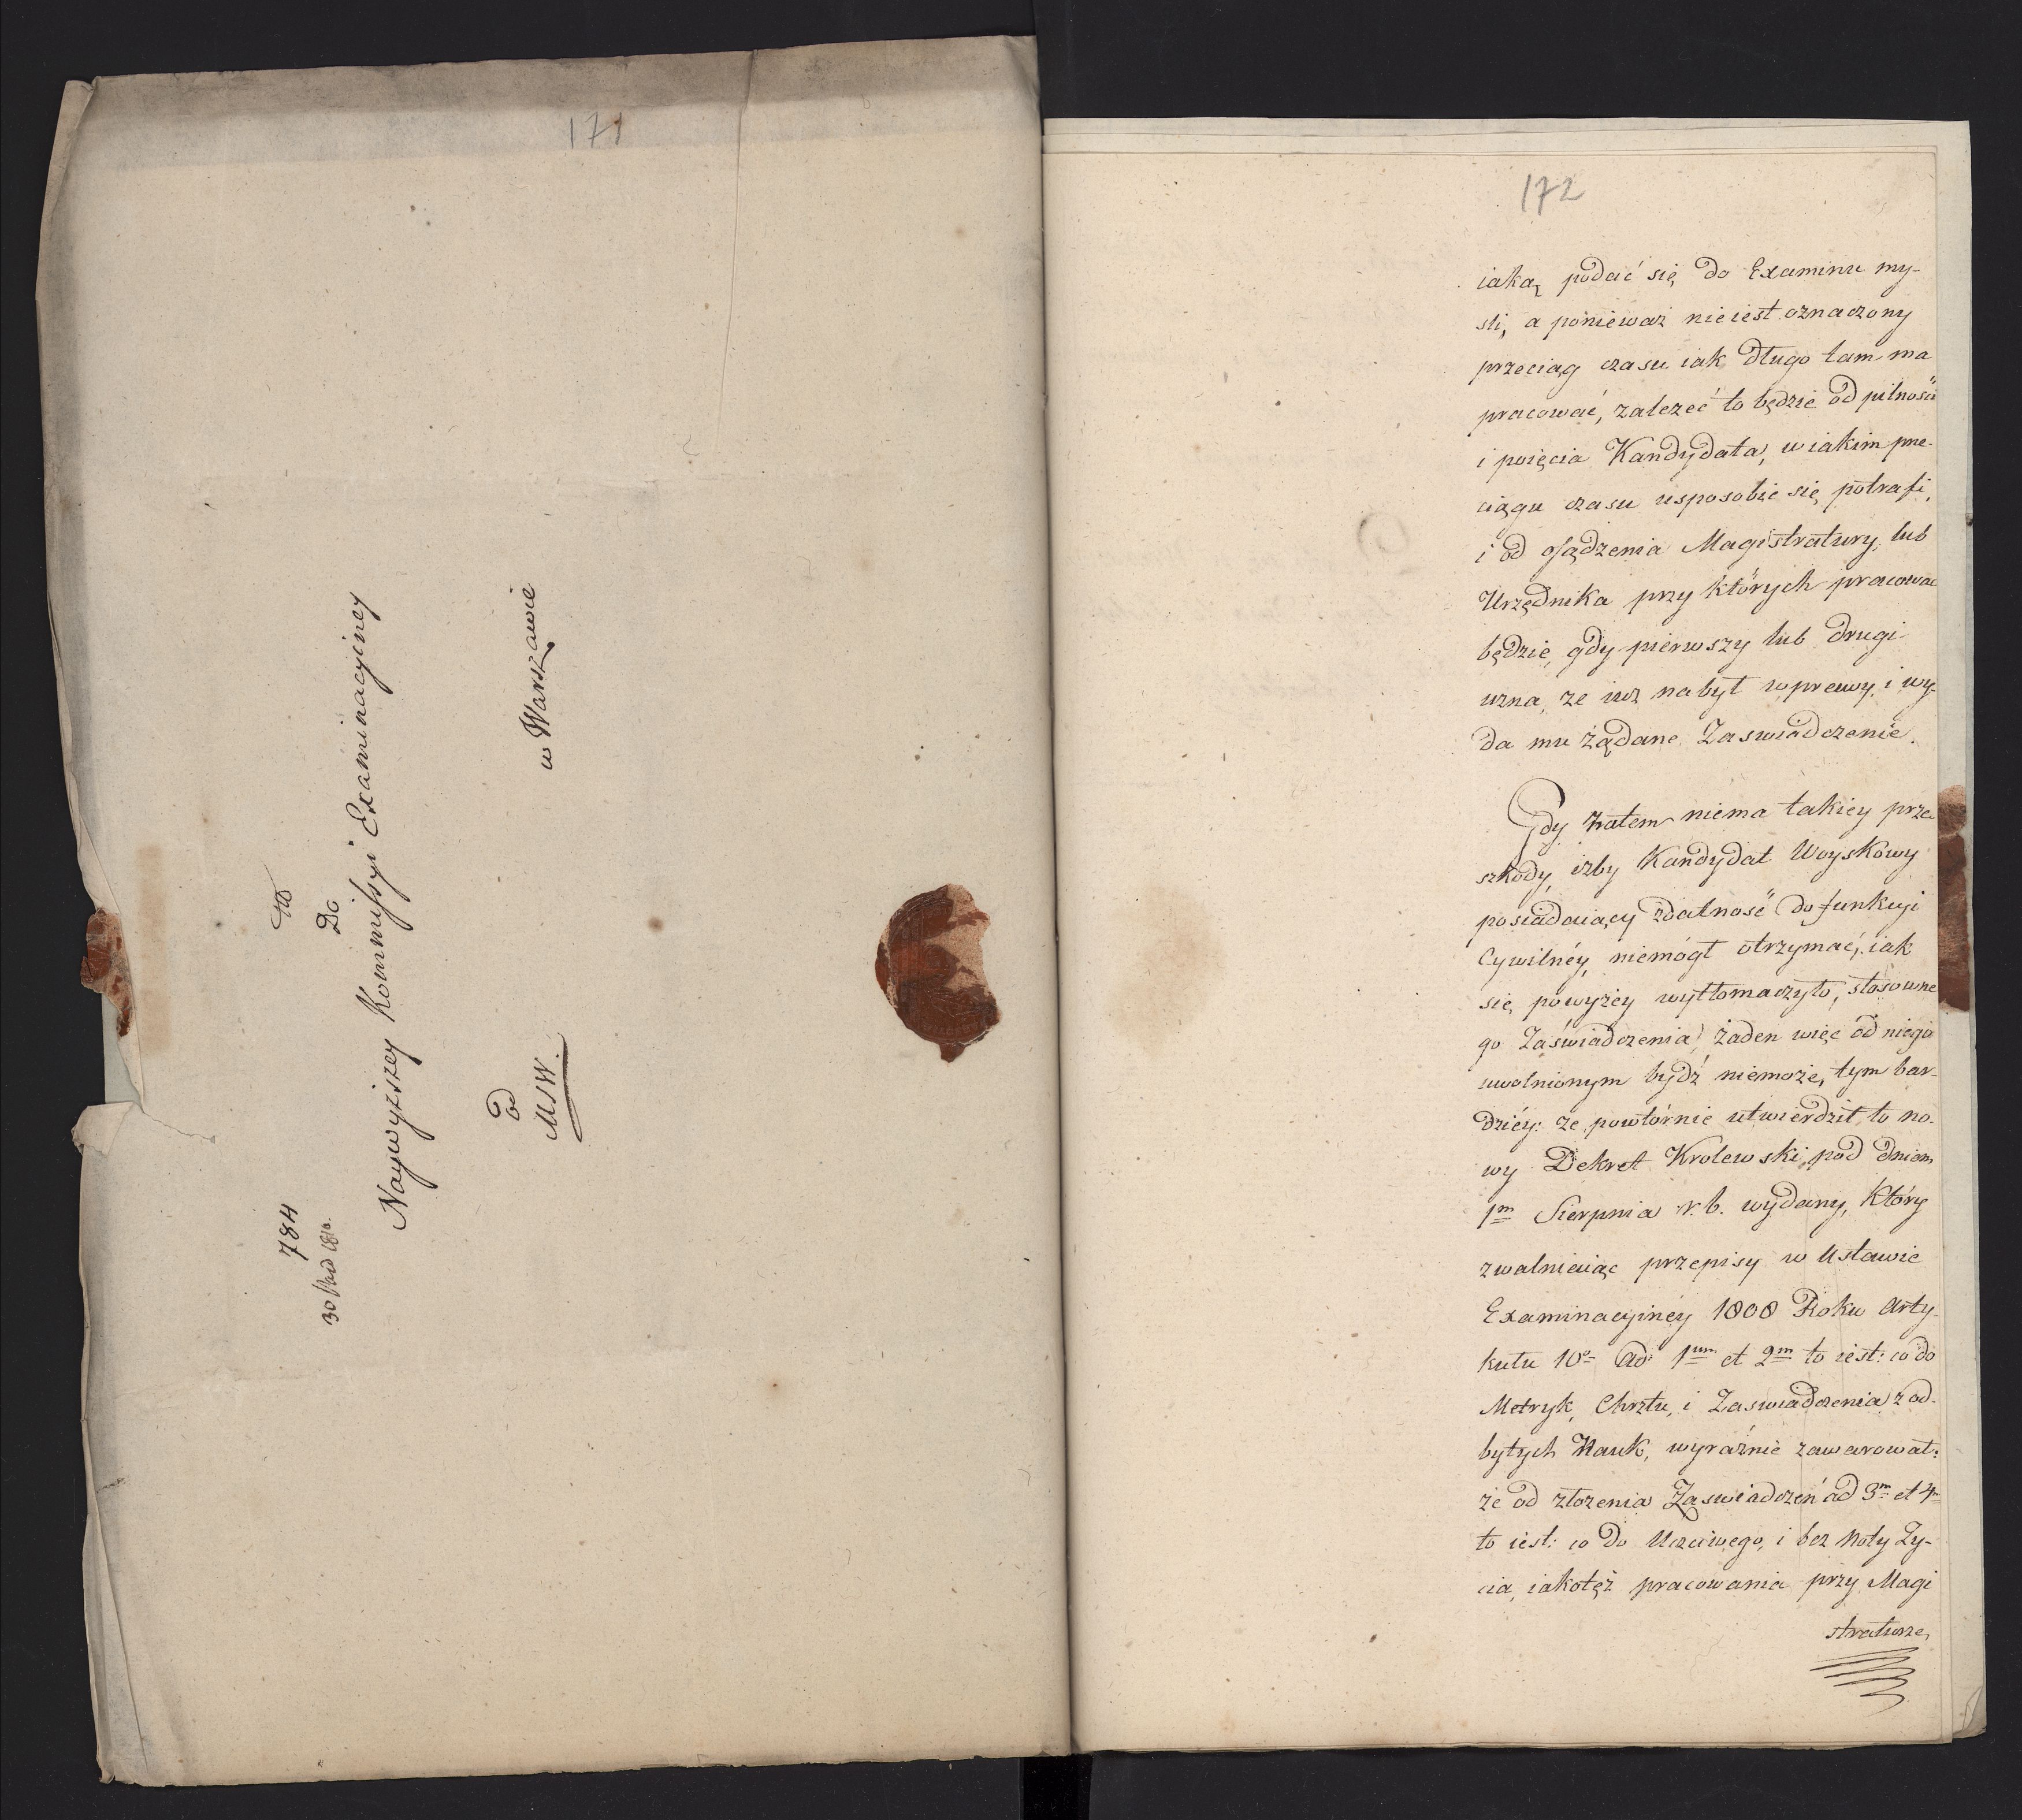 171
784
30
Do
Naywyższey Kommissyi Examinacyiney
od
MSW.
w Warszawie
172
iaką podać się do Examinu my-
sli, a ponieważ nieiest oznaczony
przeciąg czasu iak długo tam ma
pracować, zależeć to będzie od pilności
i poięcia Kandydata, w iakim prze-
ciągu czasu usposobić się potrafi,
i od osądzenia Magistratury, lub
Urzędnika przy których pracować
będzie, gdy pierwszy lub drugi
uzna, że iuż nabył wprawy, i wy-
da mu żądane Zaswiadczenie.
Gdy zatem niema takiey prze
szkody, iżby Kandydat Woyskowy
posiadaiący zdatność do funkcyi
Cywilnéy, niemógł otrzymać, iak
się powyżey wytłomaczyło, stosowne
go Zaświadczenia, żaden więc od niego
uwolnionym bydź niemoże, tym bar-
dziéy: że powtórnie utwierdził to no-
wy Dekret Krolewski pod dniem
1m Sierpnia r. b. wydany, który
zwalniaiąc przepisy w Ustawie
Examinacyinéy 1808 Roku Arty-
kułu 10o Ad 1um et 2m to iest: co do
Metryk, Chrztu, i Zaswiadczenia z od-
bytych Nauk, wyraźnie zawarował:
że od złożenia Zaswiadczeń ad 3m et 4m
to iest: co do Uczciwego, i bez Noty Ży-
cia, iakotéż pracowania przy Magi
straturze,